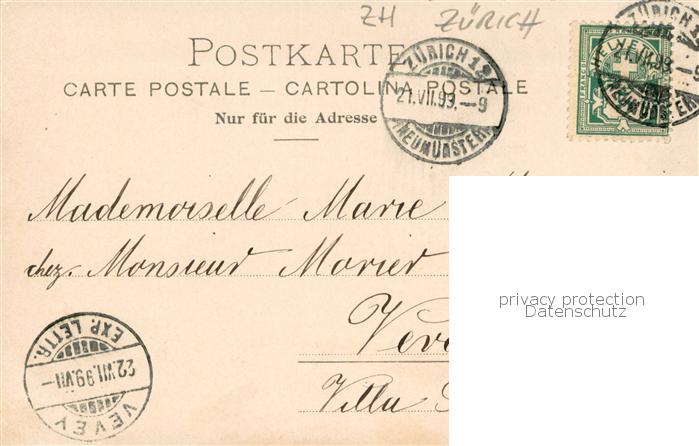 ZH ZÜRICH
POSTKARTE
CARTE POSTALE — CARTOLINA POSTALE
Nur für die Adresse
ZÜRICH 12
21.VII.99.—9
(NEUMÜNSTER)
HELVETIA
FRANCO
ZÜRICH 12
21.VII.99.—9
(NEUMÜNSTER)
Mademoiselle Marie
chez. Monsieur Morier
Veve
Villa
privacy protection
Datenschutz
EXP. LETTR.
22.VII.99.VII—
VEVEY